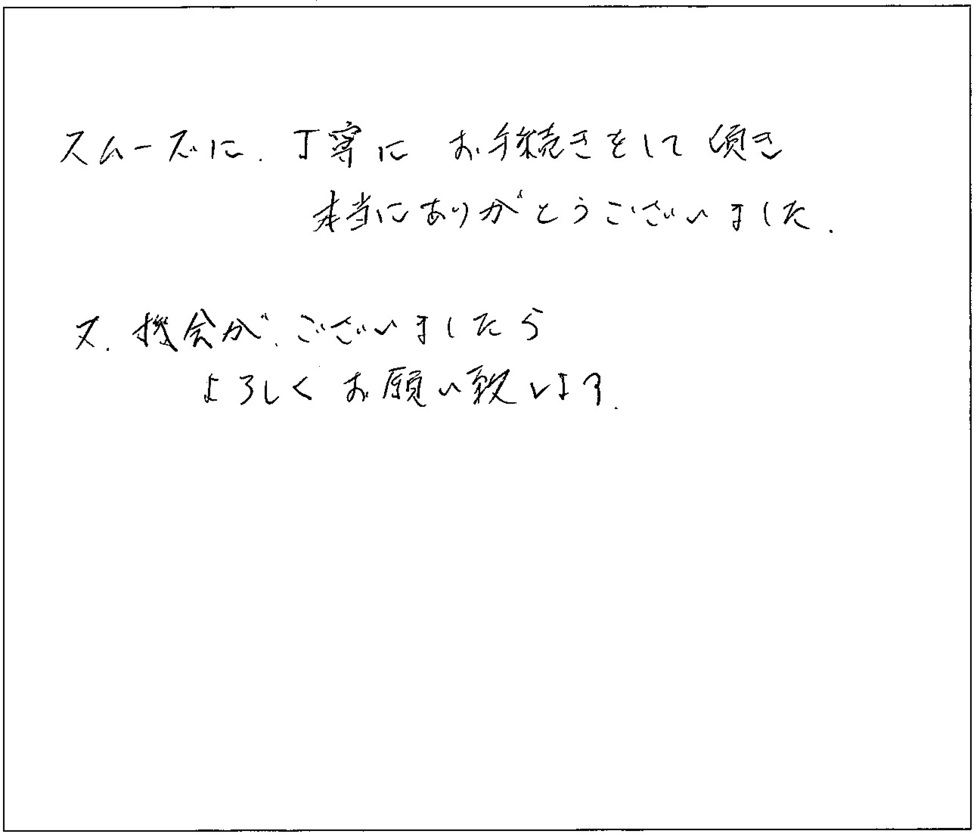 スムーズに、丁寧に お手続きをして頂き
本当にありがとうございました。
又、機会が、ございましたら
よろしくお願い致します。